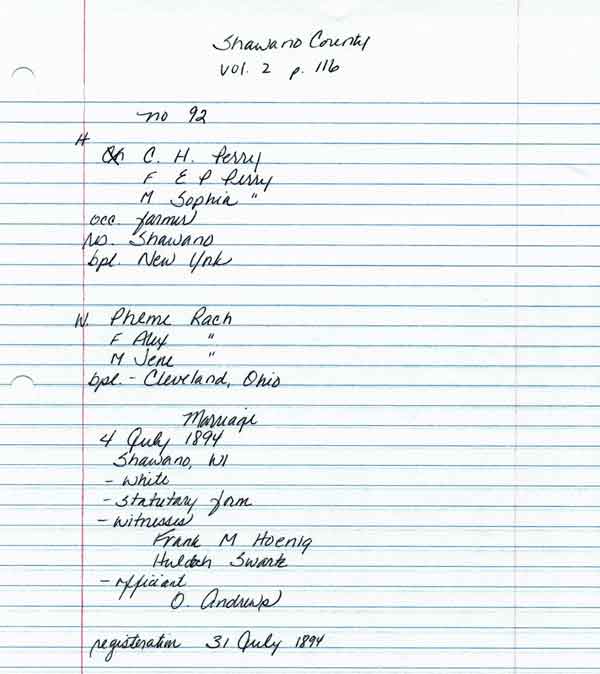 Shawano County
Vol. 2 p. 116
no 92
H
C. H. Perry
F E P Perry
M Sophia "
occ. farmer
res. Shawano
bpl. New York
W. Pheme Rach
F Alex "
M Jene "
bpl. - Cleveland, Ohio
Marriage
4 July 1894
Shawano, WI
- White
- Statutary form
- witnesses
Frank M Hoenig
Huldah Swartz
- officiant
O. Andrews
registeration 31 July 1894